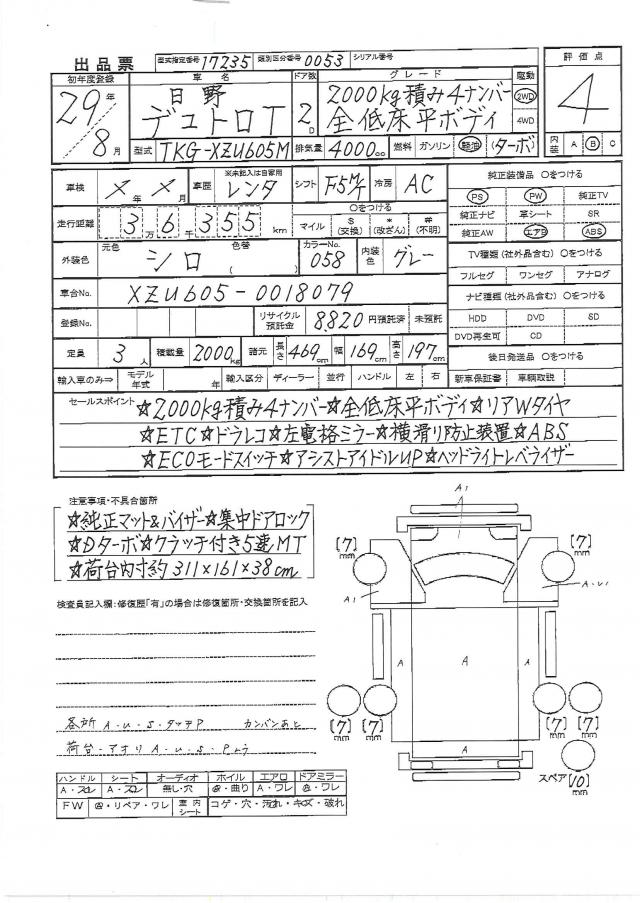 出品票 型式指定番号 17235 類別区分番号 0053 シリアル番号
初年度登録 車名 ドア数 グレード 駆動 評価点
29年 8月 日野 デュトロT 2D 2000kg積み4ナンバー 全低床平ボディ 2WD 4WD 4
型式 TKG-XZU605M 排気量 4000cc 燃料 ガソリン 軽油 (ターボ) 内装 A B C
車検 ×年 ×月 ※未記入は自家用 車歴 レンタ シフト F5M/T 冷房 AC 純正装備品 〇をつける
PS PW 純正TV
走行距離 3万6千355km 〇をつける マイル $(交換) *(改ざん) #(不明) 純正ナビ 革シート SR
純正AW エアB ABS
外装色 元色 シロ 色替 ( ) カラーNo. 058 内装色 グレー TV種類(社外品含む) 〇をつける
フルセグ ワンセグ アナログ
車台No. XZU605-0018079 ナビ種類(社外品含む) 〇をつける
登録No. リサイクル預託金 8,820 円預託済 未預託 HDD DVD SD
DVD再生可 CD
定員 3人 積載量 2000kg 諸元 長さ 469cm 幅 169cm 高さ 197cm 後日発送品 〇をつける
輸入車のみ⇒ モデル年式 年 輸入区分 ディーラー 並行 ハンドル 左 右 新車保証書 車輌取説
セールスポイント
☆2000kg積み4ナンバー☆全低床平ボディ☆リアWタイヤ
☆ETC☆ドラレコ☆左電格ミラー☆横滑り防止装置☆ABS
☆ECOモードスイッチ☆アシストアイドルUP☆ヘッドライトレベライザー
注意事項・不具合箇所
☆純正マット&バイザー☆集中ドアロック
☆Dターボ☆クラッチ付き5速MT
☆荷台内寸約311×161×38cm
検査員記入欄:修復歴「有」の場合は修復箇所・交換箇所を記入
各所 A・U・S・タッチP カンバンあと
荷台-アオリ A・U・S・P
ハンドル シート オーディオ ホイル エアロ ドアミラー
A・スレ A・スレ 無し・穴 @・曲り A・ワレ @・ワレ
FW @・リペア・ワレ 室内シート コゲ・穴・汚れ・キズ・破れ
A1
[7]mm [7]mm
A1 A・U1
A A A
[7]mm [7]mm [7]mm [7]mm
A
スペア [10]mm